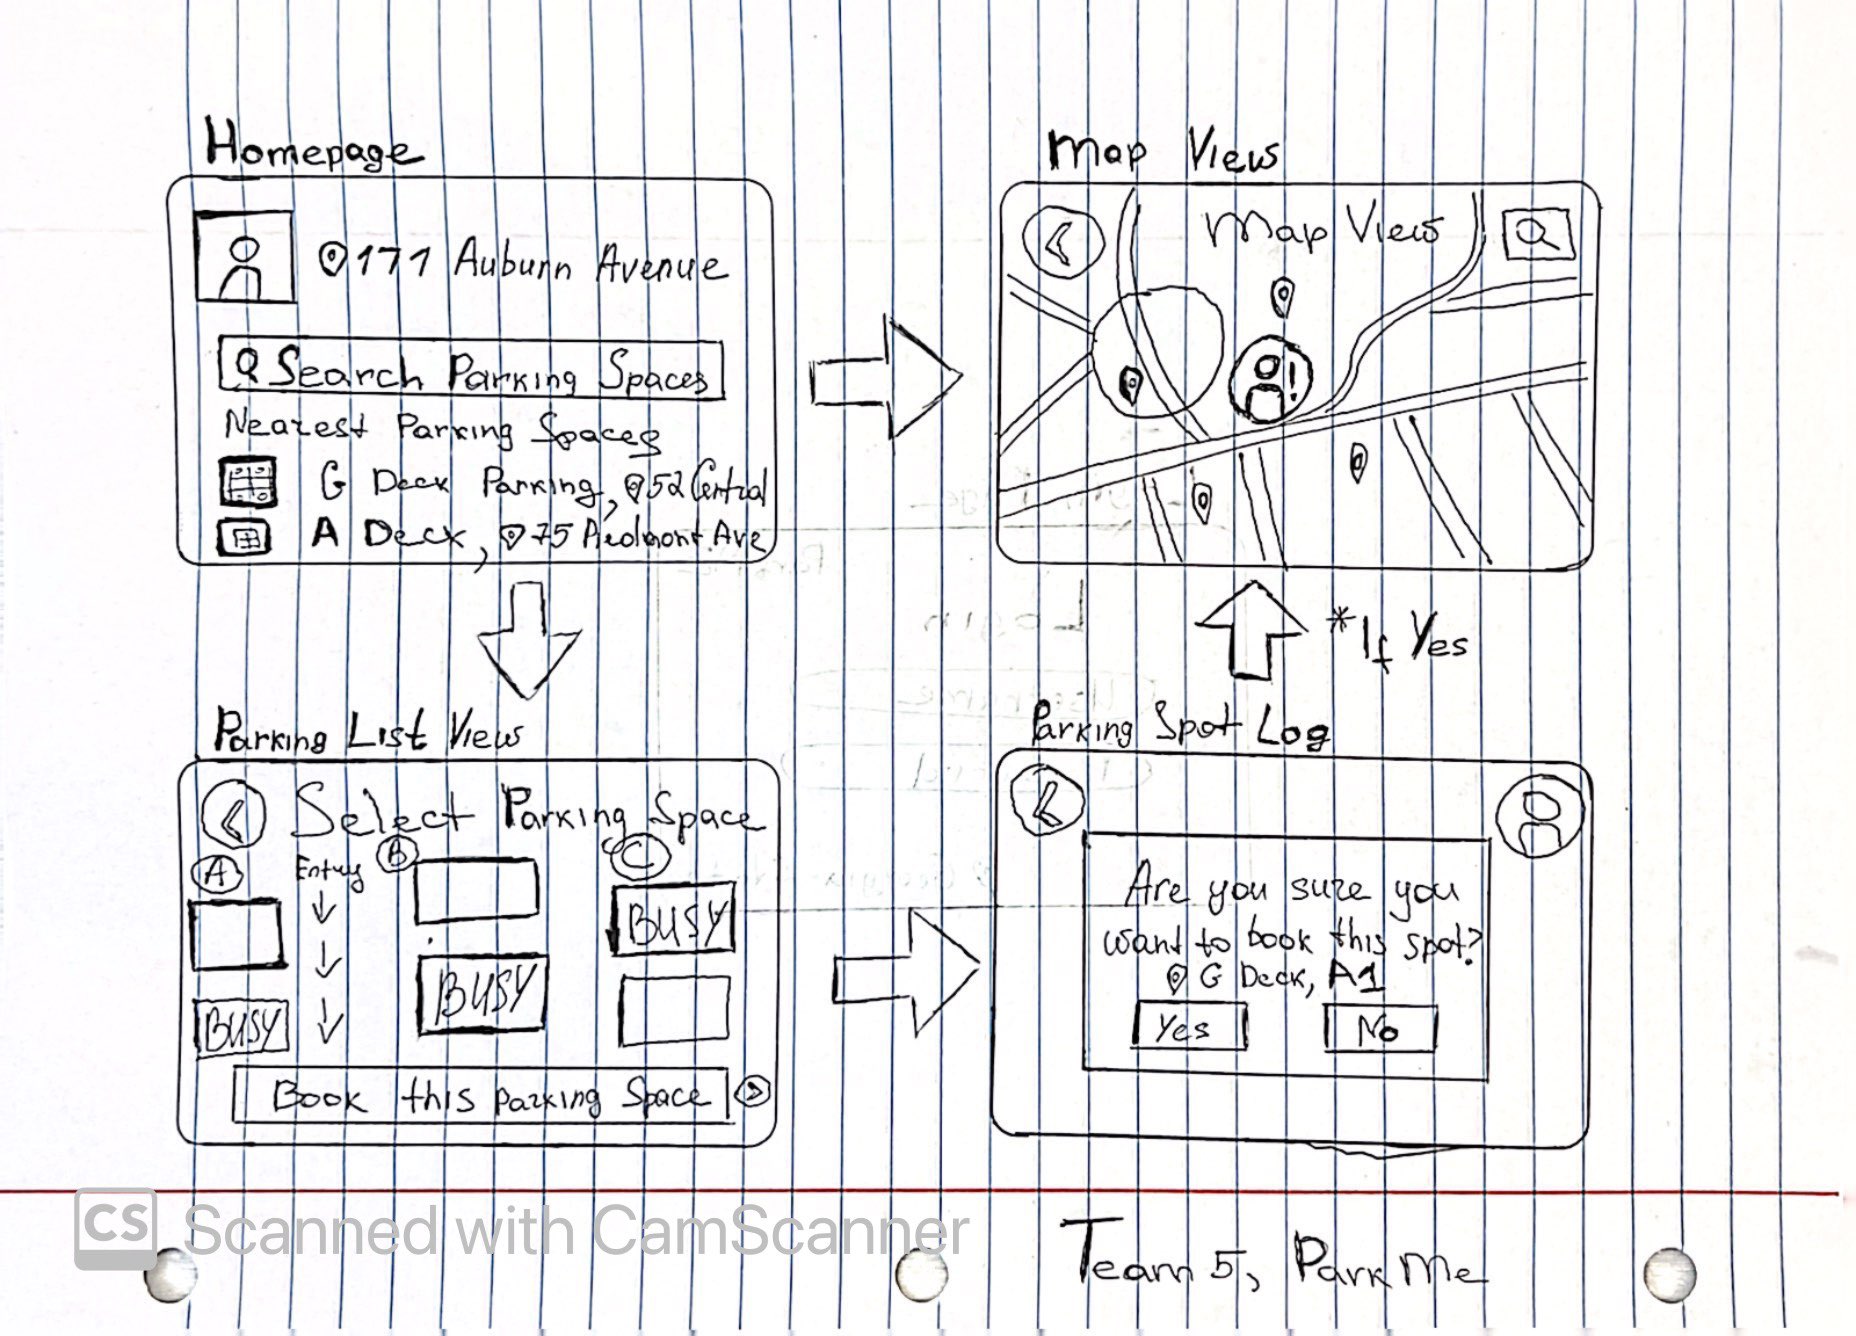 Homepage
171 Auburn Avenue
Search Parking Spaces
Nearest Parking Spaces
G Deck Parking, 52 Central
A Deck, 75 Piedmont Ave
Map View
Map View
*If Yes
Parking List View
Select Parking Space
A
Entry
B
C
BUSY
BUSY
BUSY
Book this parking Space
Parking Spot Log
Are you sure you
want to book this spot?
G Deck, A1
Yes
No
CS Scanned with CamScanner
Team 5, Park Me
Login
Username